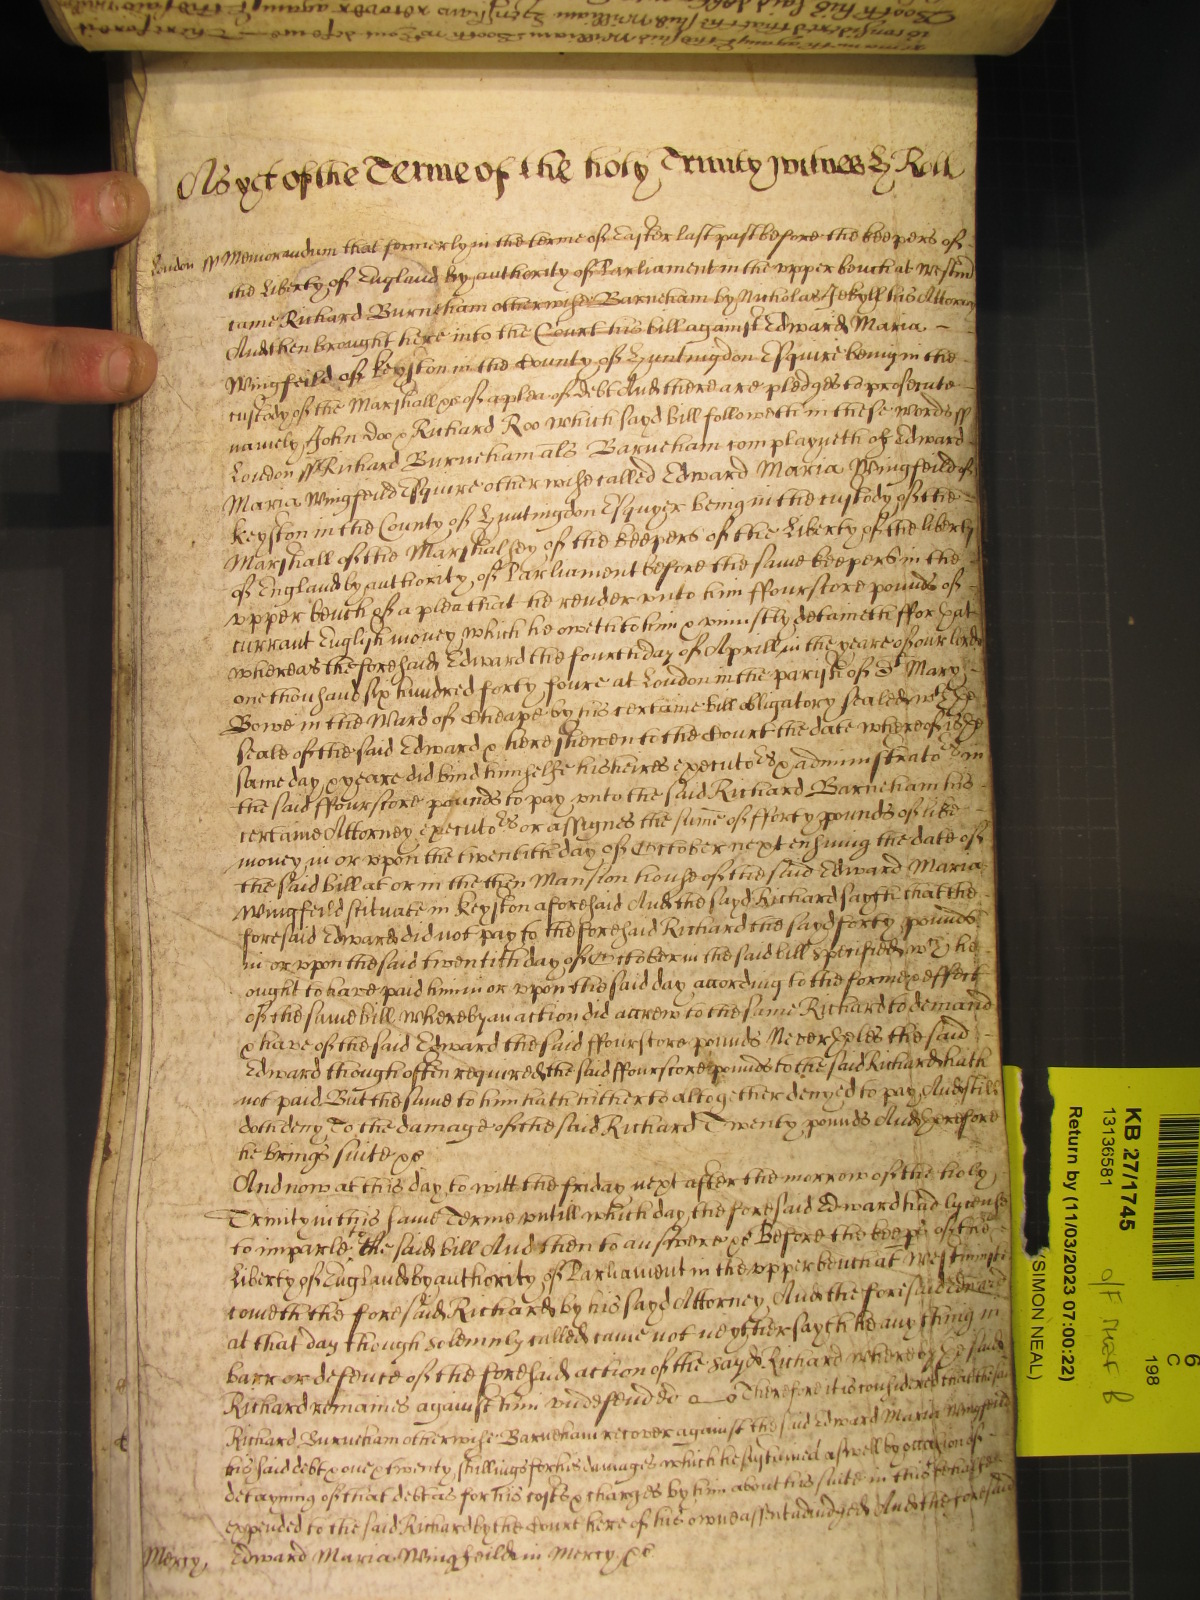 As yet of the Terme of the holy Trinity witnes by Roll
London ss Memorandum that formerly in the terme of Easter last past before the keepers of
the Liberty of England by authority of Parliament in the upper bench at Westm
came Richard Burneham otherwise Barneham by Nicholas Jekyll his Attorney
And then brought here into the Court his bill against Edward Maria
Wingfeild of Keyston in the County of Huntingdon Esquire being in the
custody of the Marshall &c of a plea of debt And there are pledges to prosecute
namely John Doo & Richard Roo which sayd bill followeth in these words ss
London ss Richard Burneham als Barneham complayneth of Edward
Maria Wingfeild Esquire otherwise called Edward Maria Wingfeild of
Keyston in the County of Huntingdon Esquyer being in the custody of the
Marshall of the Marshalsey of the keepers of the Liberty of the liberty
of England by authority of Parliament before the same keepers in the
upper bench of a plea that he render unto him ffourscore pounds of
currant English money which he oweth to him & uniustly detaineth ffor yat
whereas the foresaid Edward the fourth day of Aprill in the yeare of our lord
one thousand six hundred forty foure at London in the parish of St Mary
Bowe in the Ward of Cheape by his certaine bill obligatory sealed wth ye
seale of the said Edward & here shewen to the Court the date whereof is ye
same day & yeare did bind himselfe his heires executors & administrators in
the said ffourscore pounds to pay unto the said Richard Barneham his
certaine Attorney executors or assignes the sume of fforty pounds of like
money in or upon the twentith day of October next ensuing the date of
the said bill at or in the then Mansion house of the said Edward Maria
Wingfeild situate in Keyston aforesaid And the sayd Richard sayth that the
foresaid Edward did not pay to the foresaid Richard the sayd forty pounds
in or upon the said twentith day of October in the said bill specified wch he
ought to have paid him in or upon the said day according to the forme & effect
of the same bill whereby an action did accrew to the same Richard to demand
& have of the said Edward the said ffourscore pounds Neveryeles the said
Edward though often required the said ffourscore pounds to the said Richard hath
not paid But the same to him hath hitherto altogether denyed to pay And still
doth deny To the damage of the said Richard Twenty pounds And yerefore
he brings suite &c
And now at this day to witt the friday next after the morrow of the holy
Trinity in this same Terme untill which day the foresaid Edward had lycense
to imparle to the said bill And then to answere &c Before the keeps of the
Liberty of England by authority of Parliament in the upper bench at Westminster
cometh the foresaid Richard by his sayd Attorney And the foresaid Edward
at that day though solemnly called came not neyther sayth he any thing in
barr or defence of the foresaid action of the sayd Richard whereby ye said
Richard remaines against him undefended &c Therefore it is considered that the said
Richard Burneham otherwise Barneham recover against the said Edward Maria Wingfeild
his said debt & one & twenty shillings for his damages which he susteined aswell by occasion of
detayning of that debt as for his costs & charges by him about his suite in this behalfe
expended to the said Richard by the Court here of his owne assent adiudged And the foresaid
Mercy Edward Maria Wingfeild in Mercy &c
KB 27/1745
13136581
Return by (11/03/2023 07:00:22)
(SIMON NEAL)
6
C
198